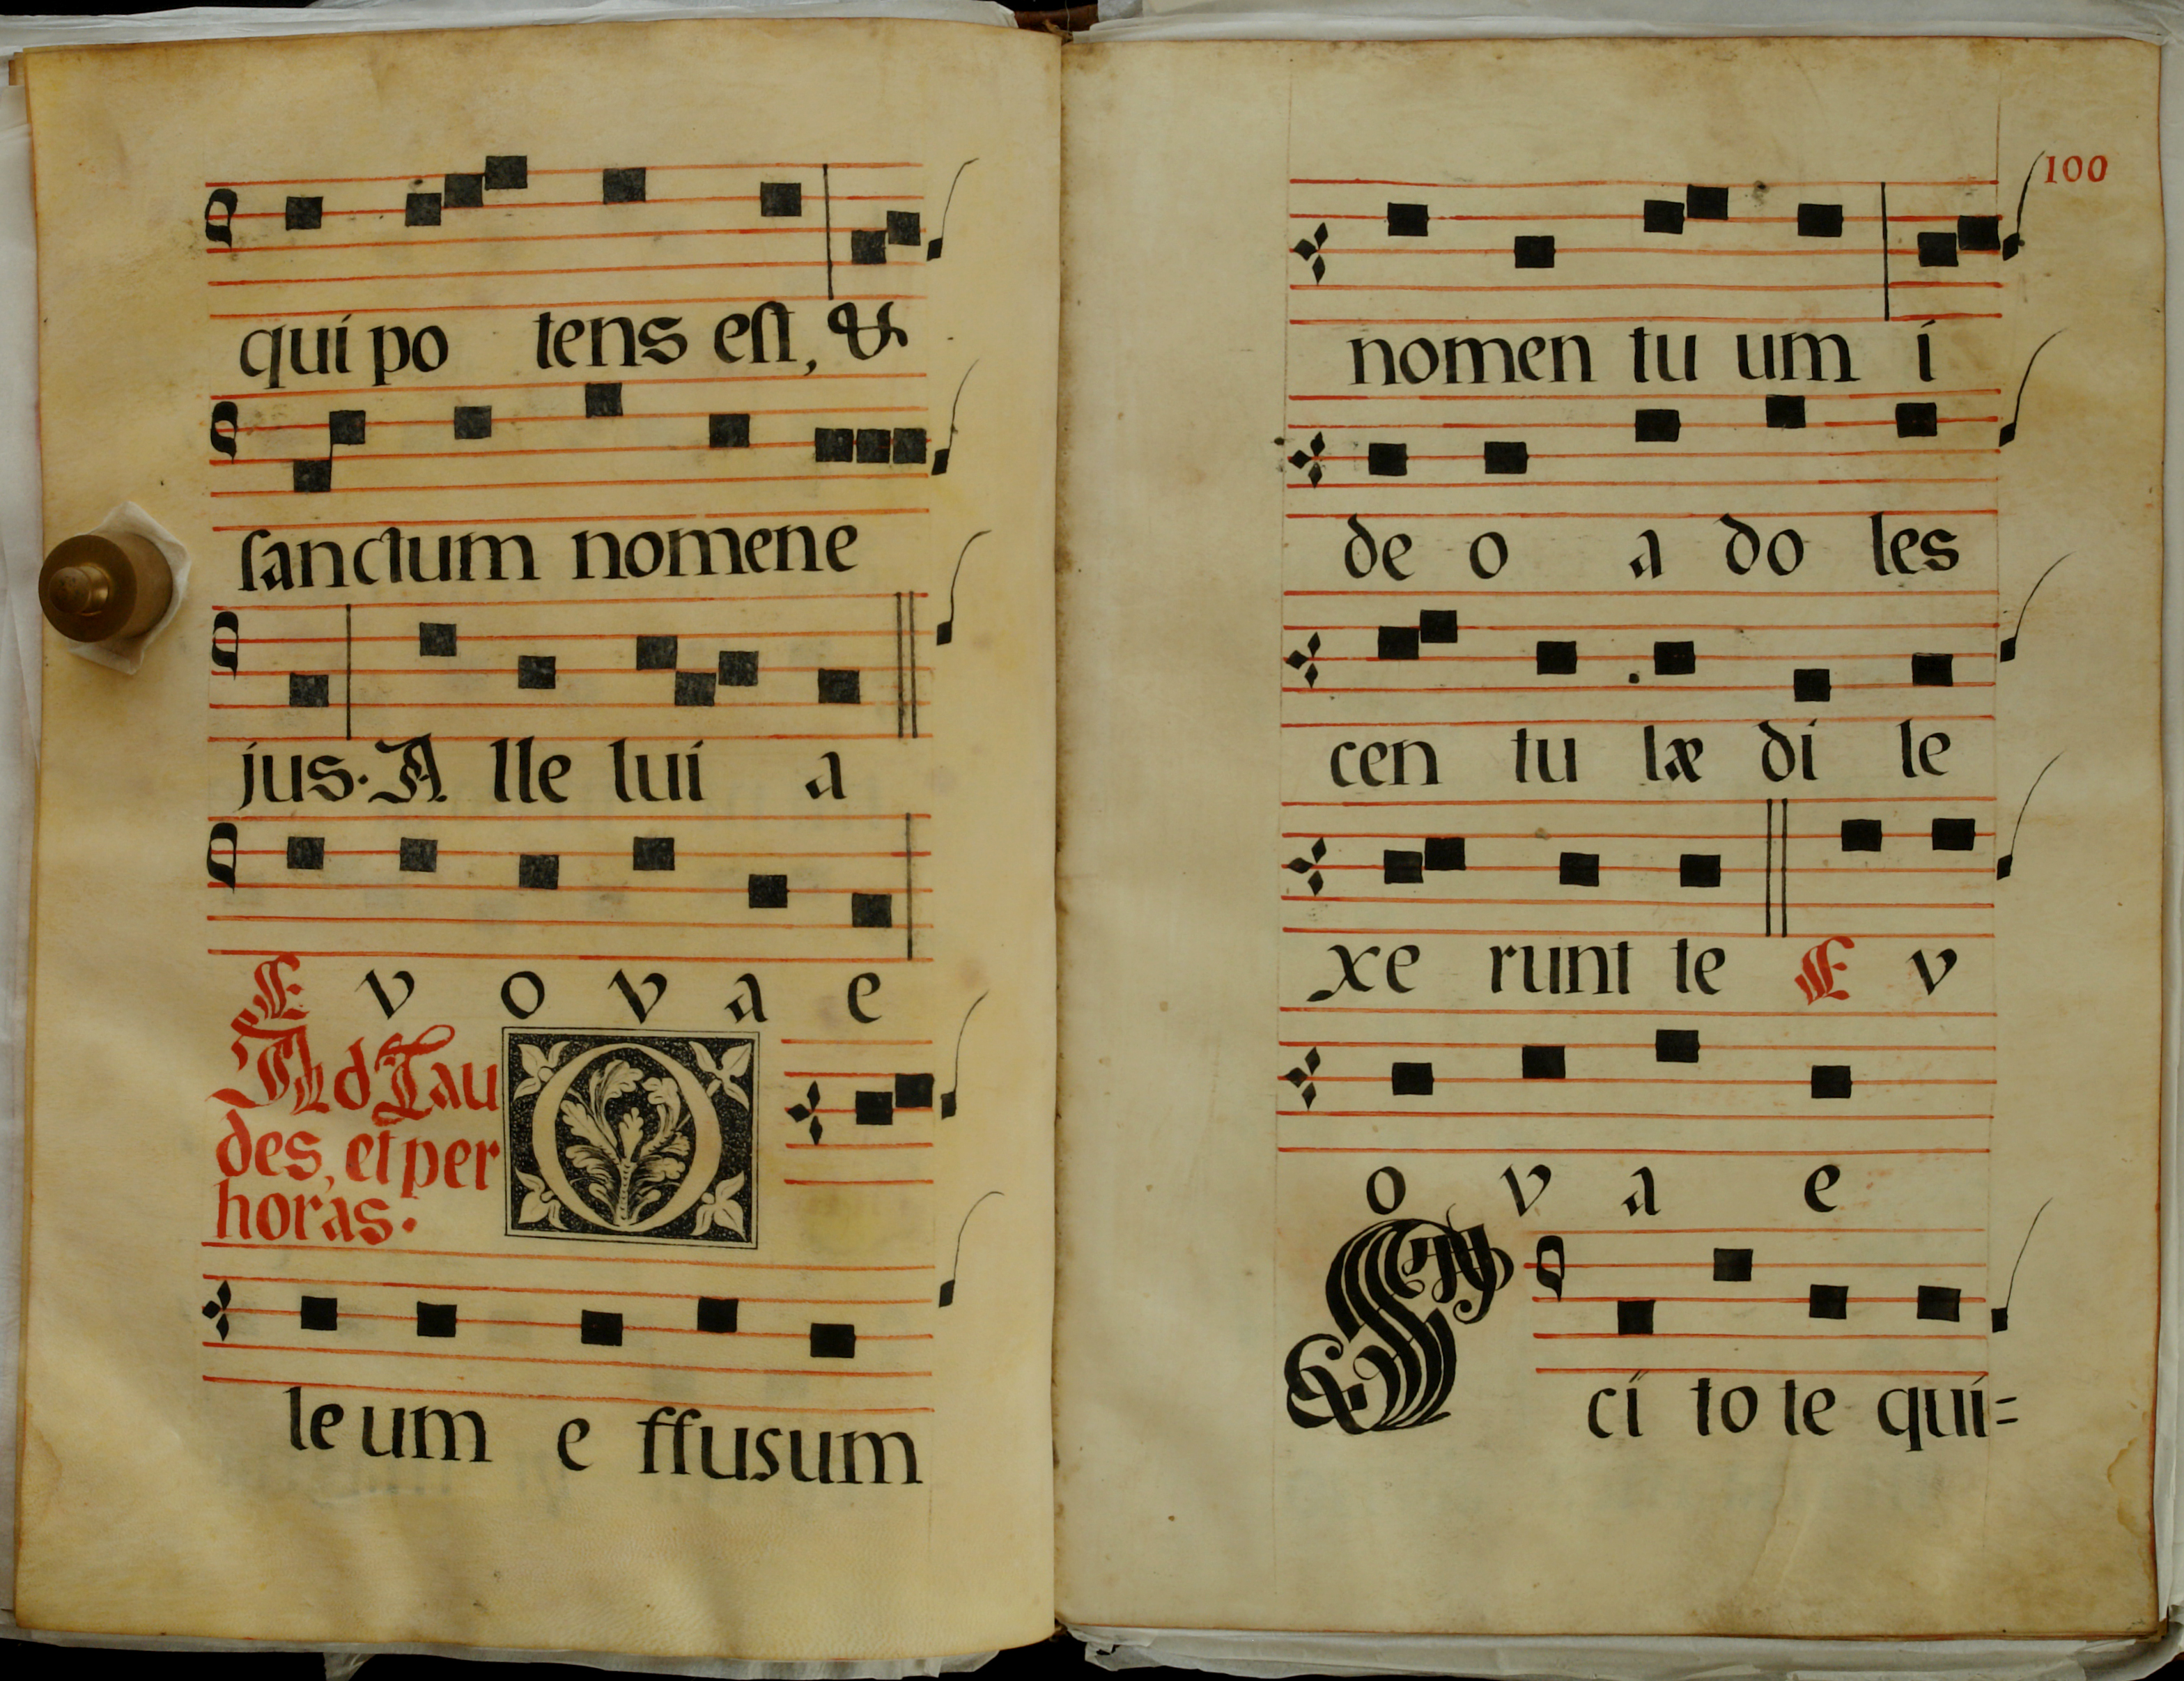 qui po tens eſt, &
ſanctum nomen e
jus. A lle lui a
E v o v a e
Ad Lau
des, et per
horas.
O
le um e ffusum
100
nomen tu um i
de o a do les
cen tu læ di le
xe runt te E v
o v a e
S ci to te qui=